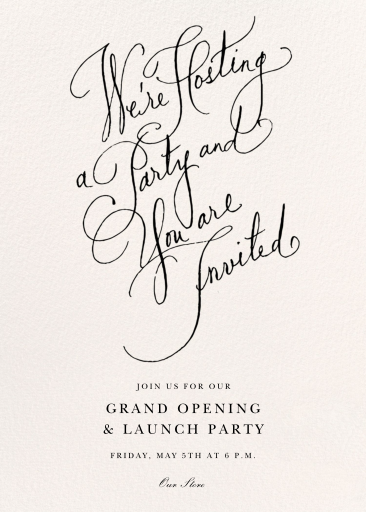 We're Hosting
a Party and
You are
Invited
JOIN US FOR OUR
GRAND OPENING
& LAUNCH PARTY
FRIDAY, MAY 5TH AT 6 P.M.
Our Store